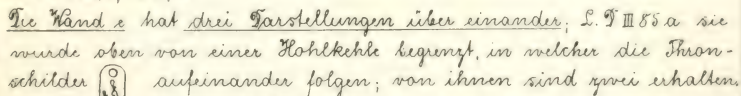 Die Wand e hat drei Darstellungen über einander; L. D III 85 a sie
wurde oben von einer Hohlkehle begrenzt, in welcher die Thron-
schilder aufeinander folgen; von ihnen sind zwei erhalten.